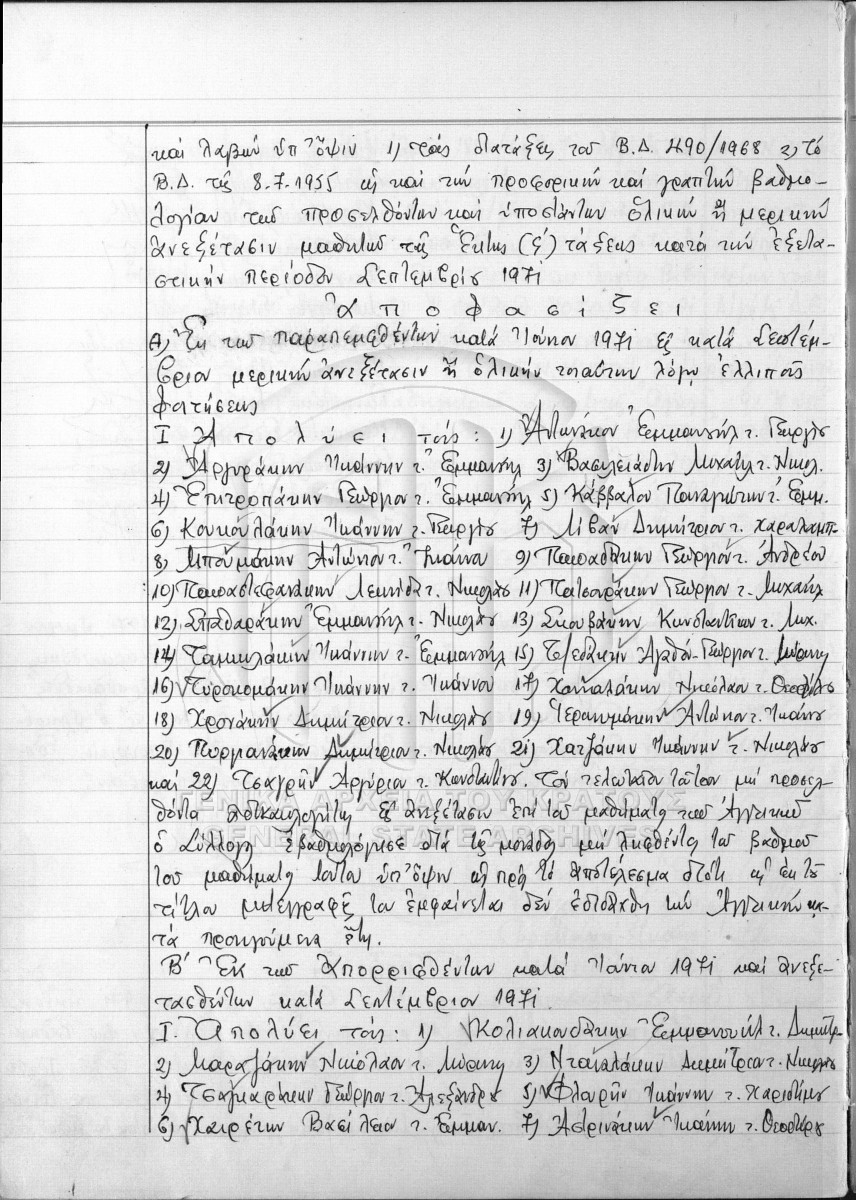 καὶ λαβὼν ὑπ' ὄψιν 1) τὰς διατάξεις τοῦ Β.Δ. 490/1968 2) τὸ
Β.Δ. τῆς 8-7-1955 ὡς καὶ τὴν προφορικὴν καὶ γραπτὴν βαθμο-
λογίαν τῶν προσελθόντων καὶ ὑποστάντων ὁλικὴν ἢ μερικὴν
ἀνεξέτασιν μαθητῶν τῆς Ἕκτης (ς') τάξεως κατὰ τὴν ἐξετα-
στικὴν περίοδον Σεπτεμβρίου 1971
Ἀ π ο φ α σ ί ζ ε ι
Α) Ἐκ τῶν παραπεμφθέντων κατὰ Ἰούνιον 1971 εἰς κατὰ Σεπτέμ-
βριον μερικὴν ἀνεξέτασιν ἢ ὁλικὴν τοιαύτην λόγῳ ἐλλιποῦς
φοιτήσεως
Ι Ἀ π ο λ ύ ε ι τούς : 1) Ἀντωνάκον Ἐμμανουὴλ τ. Γεωργίου
2) Ἀργυράκην Ἰωάννην τ. Ἐμμανουήλ 3) Βασιλειάδην Μιχαὴλ τ. Νικολ.
4) Ἐπιτροπάκην Γεώργιον τ. Ἐμμανουήλ 5) Κάββαλον Παναγιώτην τ. Ἐμμ.
6) Κουκουλάκην Ἰωάννην τ. Γεωργίου 7) Λίβαν Δημήτριον τ. Χαραλαμπ.
8) Μπουμάκην Ἀντώνιον τ. Ἰωάννου 9) Παπαδάκην Γεώργιον τ. Ἀνδρέου
10) Παπαστεφανάκην Λεωνίδα τ. Νικολάου 11) Πατσουράκην Γεώργιον τ. Μιχαήλ
12) Σπαθαράκην Ἐμμανουὴλ τ. Νικολάου 13) Σκουβάκην Κωνσταντῖνον τ. Μιχ.
14) Ἰωάννην τ. Ἐμμανουήλ 15) Γεώργιον τ.
16) Τυροκομάκην Ἰωάννην τ. Ἰωάννου 17) Νικόλαον τ.
18) Χρονάκην Δημήτριον τ. Νικολάου 19) Ἱερωνυμάκην Ἀντώνιον τ. Ἰωάννου
20) Πυργιανάκην Δημήτριον τ. Νικολάου 21) Χατζάκην Ἰωάννην τ. Νικολάου
καὶ 22) Τσαγρῆν Ἀργύριον τ. Κωνσταντίνου. Τὸν τελευταῖον τοῦτον μὴ προσελ-
θόντα ἀδικαιολογήτως εἰς ἀνεξέτασιν ἐπὶ τοῦ μαθήματος τῶν Ἀγγλικῶν
ὁ Σύλλογος ἐβαθμολόγησε διὰ τῆς μονάδος μὴ ληφθέντος τοῦ βαθμοῦ
τοῦ μαθήματος τούτου ὑπ' ὄψιν ὡς πρὸς τὸ ἀποτέλεσμα διότι ὡς ἐκ τοῦ
τίτλου μετεγγραφῆς του ἐμφαίνεται δὲν ἐδιδάχθη τὴν Ἀγγλικὴν κα-
τὰ προηγούμενα ἔτη.
Β' Ἐκ τῶν ἀπορριφθέντων κατὰ Ἰούνιον 1971 καὶ ἀνεξε-
τασθέντων κατὰ Σεπτέμβριον 1971
Ι. Ἀπολύει τούς : 1) Κολιακουδάκην Ἐμμανουὴλ τ. Δημητρ.
2) Μαραζάκην Νικόλαον τ. Μύρωνος 3) Νταγαλάκην Δημήτριον τ. Νικολάου
4) Τσαγκαράκην Γεώργιον τ. Ἀλεξάνδρου 5) Φλουρῆν Ἰωάννην τ. Χαριδήμου
6) Χαιρέτην Βασίλειον τ. Ἐμμαν. 7) Ἀστρινάκην Ἰωάννην τ. Θεοδώρου
ΓΕΝΙΚΑ ΑΡΧΕΙΑ ΤΟΥ ΚΡΑΤΟΥΣ
GENERAL STATE ARCHIVES